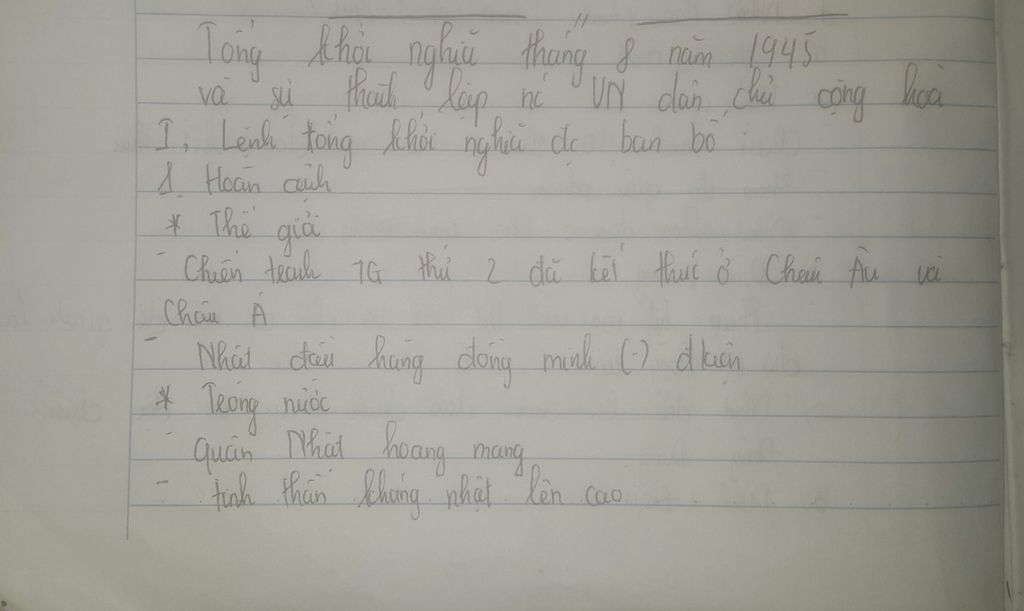 Tổng khởi nghĩa tháng 8 năm 1945
và sự thành lập nc VN dân chủ cộng hoà
I, Lệnh tổng khởi nghĩa dc ban bố
1. Hoàn cảnh
* Thế giới
- Chiến tranh TG thứ 2 đã kết thúc ở Châu Âu và
Châu Á
- Nhật đầu hàng đồng minh (-) đkiện
* Trong nước
- Quân Nhật hoang mang
- tinh thần kháng nhật lên cao